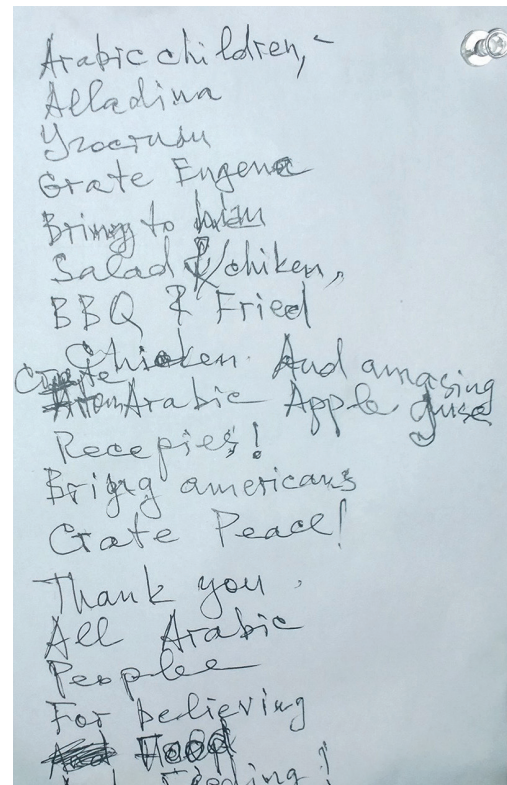 Arabic children,-
Alladina
Grate Eugene
Bring to
Salad & chiken,
BBQ & Fried
Chicken. And amazing
Arabic Apple Juse
Recepies!
Bring americans
Grate Peace!
Thank you.
All Arabic
People
For believing
Food
Feeding!